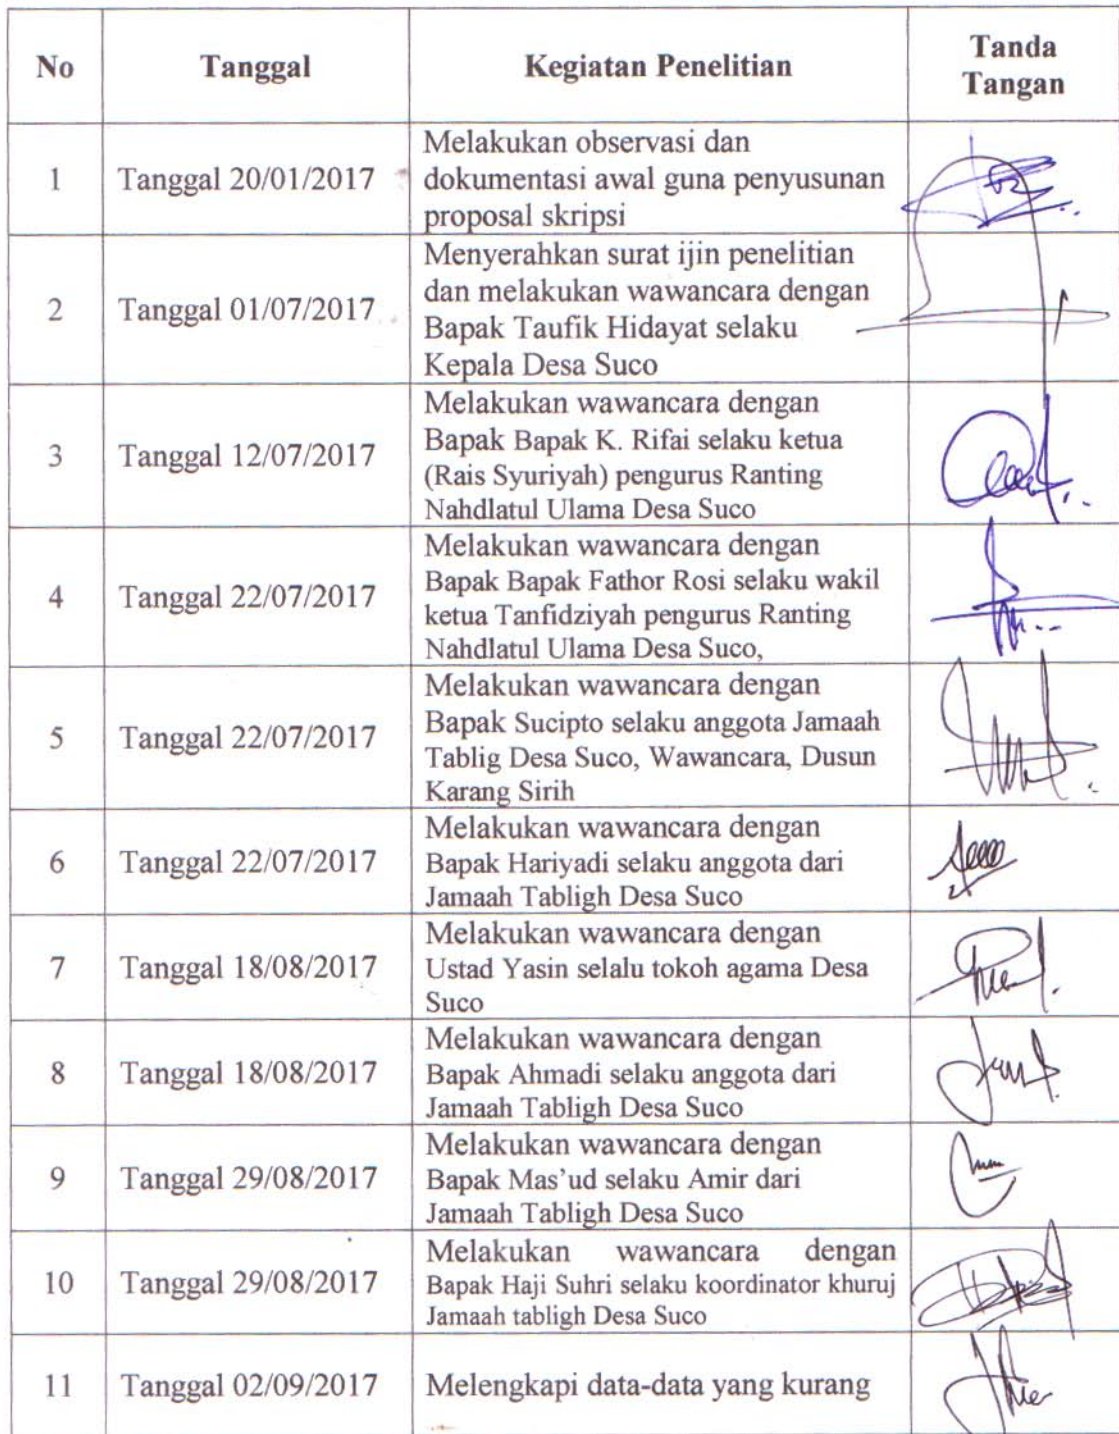 No Tanggal Kegiatan Penelitian Tanda
Tangan
1 Tanggal 20/01/2017 Melakukan observasi dan
dokumentasi awal guna penyusunan
proposal skripsi
2 Tanggal 01/07/2017 Menyerahkan surat ijin penelitian
dan melakukan wawancara dengan
Bapak Taufik Hidayat selaku
Kepala Desa Suco
3 Tanggal 12/07/2017 Melakukan wawancara dengan
Bapak Bapak K. Rifai selaku ketua
(Rais Syuriyah) pengurus Ranting
Nahdlatul Ulama Desa Suco
4 Tanggal 22/07/2017 Melakukan wawancara dengan
Bapak Bapak Fathor Rosi selaku wakil
ketua Tanfidziyah pengurus Ranting
Nahdlatul Ulama Desa Suco,
5 Tanggal 22/07/2017 Melakukan wawancara dengan
Bapak Sucipto selaku anggota Jamaah
Tablig Desa Suco, Wawancara, Dusun
Karang Sirih
6 Tanggal 22/07/2017 Melakukan wawancara dengan
Bapak Hariyadi selaku anggota dari
Jamaah Tabligh Desa Suco
7 Tanggal 18/08/2017 Melakukan wawancara dengan
Ustad Yasin selalu tokoh agama Desa
Suco
8 Tanggal 18/08/2017 Melakukan wawancara dengan
Bapak Ahmadi selaku anggota dari
Jamaah Tabligh Desa Suco
9 Tanggal 29/08/2017 Melakukan wawancara dengan
Bapak Mas'ud selaku Amir dari
Jamaah Tabligh Desa Suco
10 Tanggal 29/08/2017 Melakukan wawancara dengan
Bapak Haji Suhri selaku koordinator khuruj
Jamaah tabligh Desa Suco
11 Tanggal 02/09/2017 Melengkapi data-data yang kurang